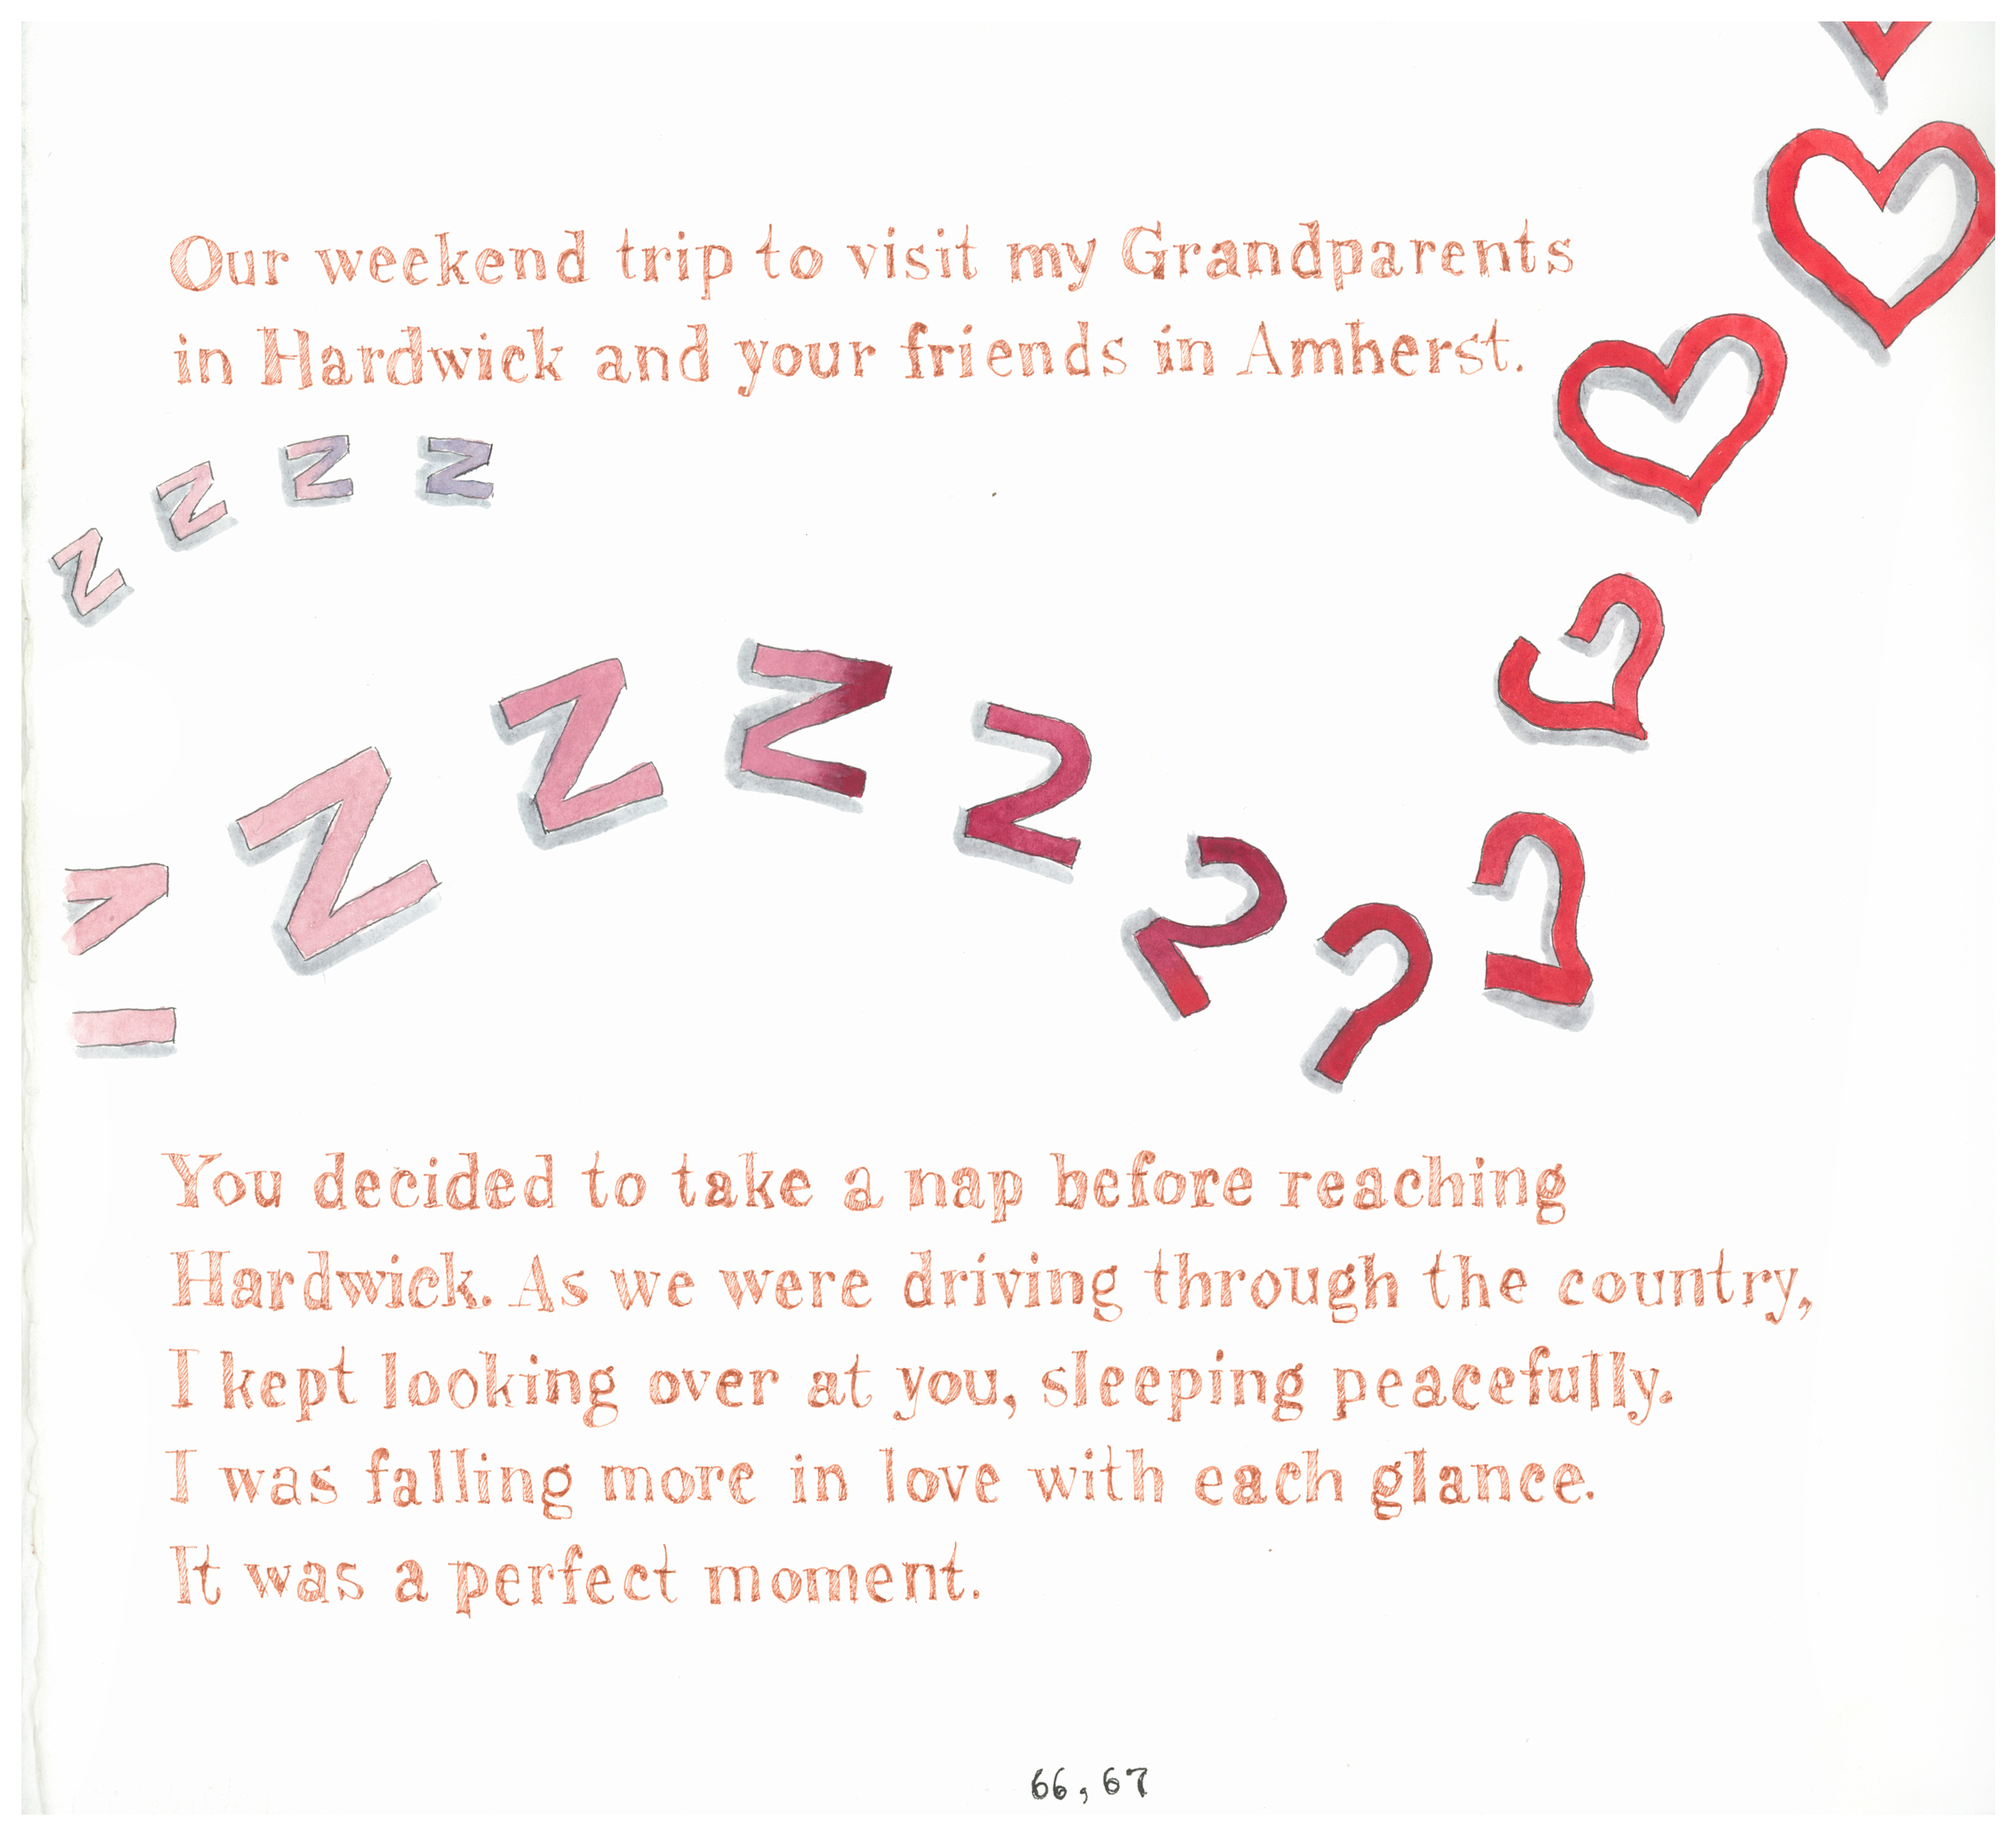 Our weekend trip to visit my Grandparents
in Hardwick and your friends in Amherst.
z z z z
Z Z Z
You decided to take a nap before reaching
Hardwick. As we were driving through the country,
I kept looking over at you, sleeping peacefully.
I was falling more in love with each glance.
It was a perfect moment.
66, 67